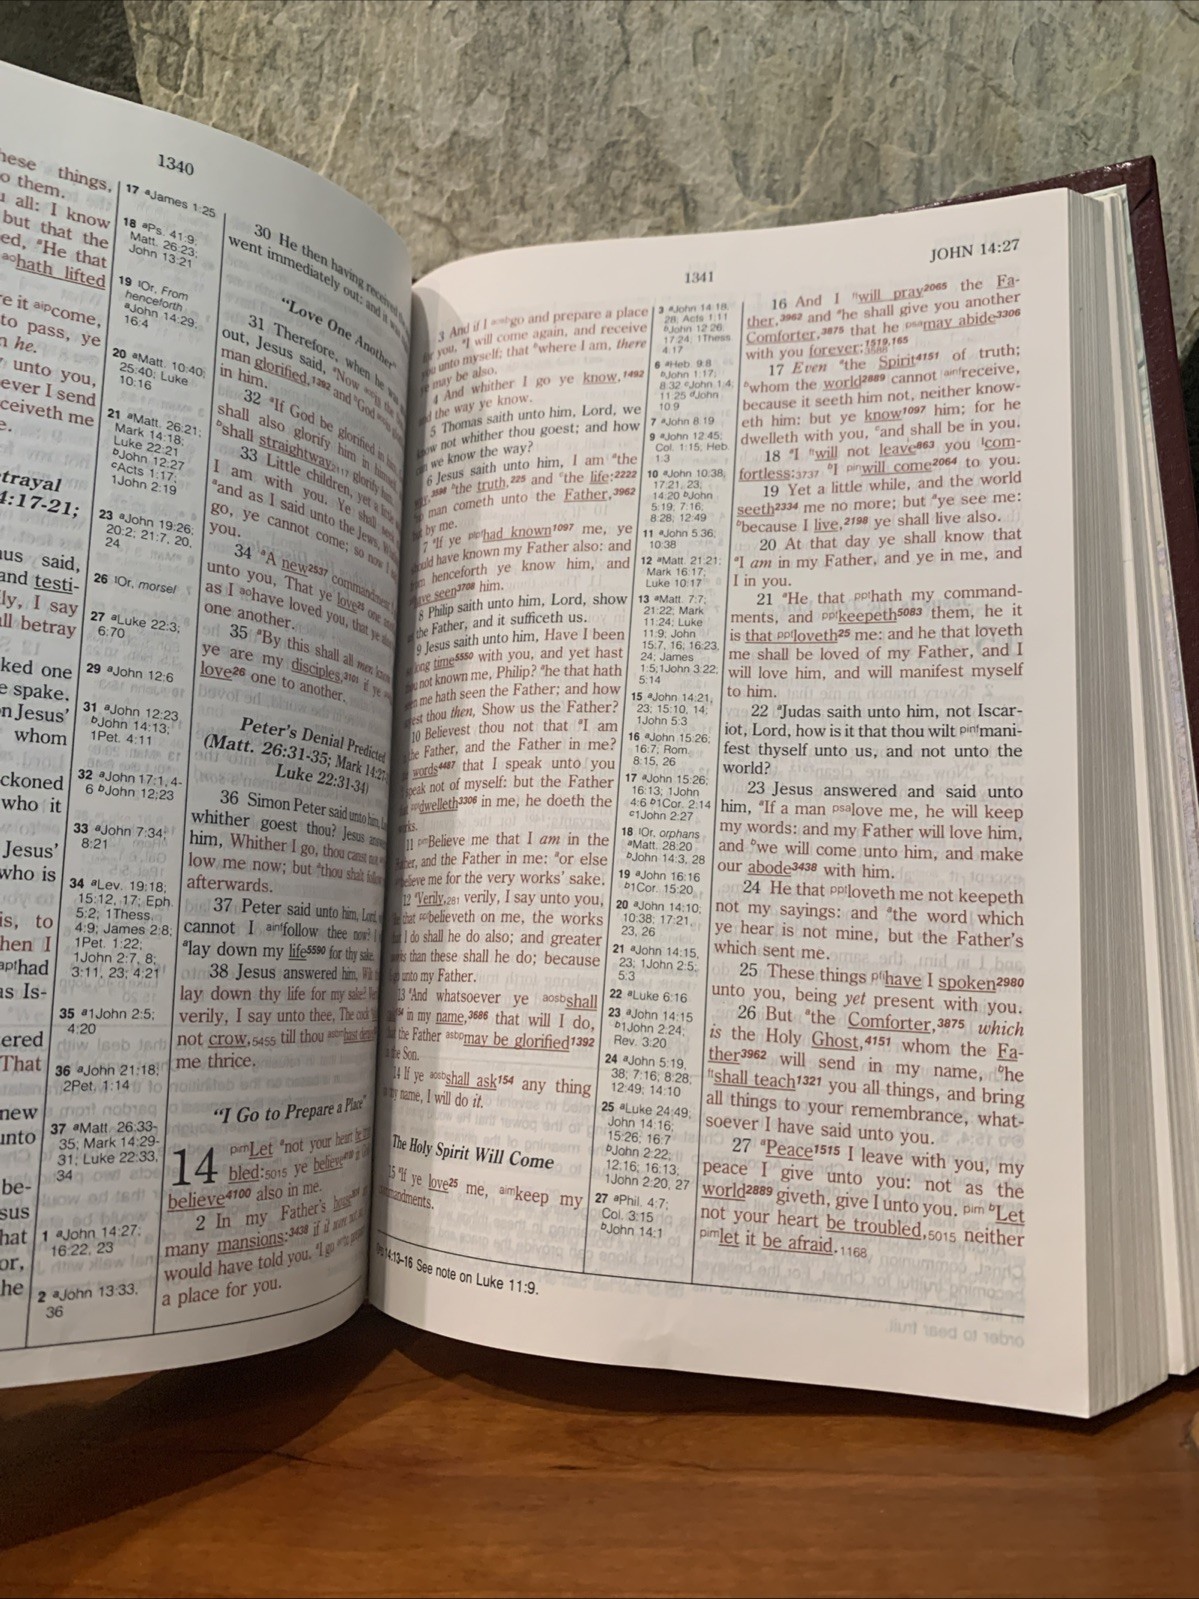 1340
hese things,
o them.
all: I know
but that the
ed, aHe that
aohath lifted
re it aipcome,
to pass, ye
n he.
unto you,
ever I send
ceiveth me
e.
trayal
4:17-21;
us said,
and testi-
ly, I say
ll betray
ked one
e spake.
n Jesus'
whom
ckoned
who it
Jesus'
who is
is, to
hen I
apthad
as Is-
ered
That
new
unto
be-
sus
hat
or,
he
17 aJames 1:25
18 aPs. 41:9;
Matt. 26:23;
John 13:21
19 1Or, From
henceforth
aJohn 14:29;
16:4
20 aMatt. 10:40;
25:40; Luke
10:16
21 aMatt. 26:21;
Mark 14:18;
Luke 22:21
bJohn 12:27
cActs 1:17;
1John 2:19
23 aJohn 19:26;
20:2; 21:7, 20,
24
26 1Or, morsel
27 aLuke 22:3;
6:70
29 aJohn 12:6
31 aJohn 12:23
bJohn 14:13;
1Pet. 4:11
32 aJohn 17:1, 4-
6 bJohn 12:23
33 aJohn 7:34;
8:21
34 aLev. 19:18;
15:12, 17; Eph.
5:2; 1Thess.
4:9; James 2:8;
1Pet. 1:22;
1John 2:7, 8;
3:11, 23; 4:21
35 a1John 2:5;
4:20
36 aJohn 21:18;
2Pet. 1:14
37 aMatt. 26:33-
35; Mark 14:29-
31; Luke 22:33,
34
1 aJohn 14:27;
16:22, 23
2 aJohn 13:33,
36
30 He then having received
went immediately out: and it
"Love One Another"
31 Therefore, when he
out, Jesus said, aNow
man glorified,1392 and bGod
in him.
32 aIf God be glorified in
shall also glorify him in himself,
bshall straightway glorify him.
33 Little children, yet a little
I am with you. Ye shall seek
aand as I said unto the Jews,
go, ye cannot come; so now I
you.
34 aA new2537 commandment I
unto you, That ye love25 one
as I aohave loved you, that ye also
one another.
35 aBy this shall all men know
ye are my disciples,3101 if ye
love26 one to another.
Peter's Denial Predicted
(Matt. 26:31-35; Mark 14:27
Luke 22:31-34)
36 Simon Peter said unto him,
whither goest thou? Jesus
him, Whither I go, thou canst not
low me now; but athou shalt follow
afterwards.
37 Peter said unto him, Lord,
cannot I ainfollow thee now? I
alay down my life5590 for thy sake.
38 Jesus answered him,
lay down thy life for my sake?
verily, I say unto thee, The cock
not crow,5455 till thou
me thrice.
"I Go to Prepare a Place"
14 pimLet anot your heart be
bled:5015 ye believe
believe4100 also in me.
2 In my Father's house
many mansions:3438 if it were not
would have told you. aI go
a place for you.
1341
JOHN 14:27
3 And if I go and prepare a place
you, aI will come again, and receive
you unto myself; that bwhere I am, there
ye may be also.
4 And whither I go ye know,1492
and the way ye know.
5 Thomas saith unto him, Lord, we
know not whither thou goest; and how
can we know the way?
6 Jesus saith unto him, I am athe
bthe truth,225 and cthe life:2222
man cometh unto the Father,3962
but by me.
7 aIf ye had known1097 me, ye
should have known my Father also: and
from henceforth ye know him, and
have seen3708 him.
8 Philip saith unto him, Lord, show
the Father, and it sufficeth us.
9 Jesus saith unto him, Have I been
long time5550 with you, and yet hast
thou not known me, Philip? ahe that hath
seen me hath seen the Father; and how
sayest thou then, Show us the Father?
10 Believest thou not that aI am
in the Father, and the Father in me?
the words4487 that I speak unto you
speak not of myself: but the Father
that dwelleth3306 in me, he doeth the
works.
11 pimBelieve me that I am in the
Father, and the Father in me: aor else
believe me for the very works' sake.
12 aVerily,281 verily, I say unto you,
He that believeth on me, the works
that I do shall he do also; and greater
works than these shall he do; because
I go unto my Father.
13 aAnd whatsoever ye aosbshall
in my name,3686 that will I do,
that the Father aosbmay be glorified1392
in the Son.
14 If ye aosbshall ask154 any thing
in my name, I will do it.
The Holy Spirit Will Come
15 aIf ye love25 me, aimkeep my
commandments.
14:13-16 See note on Luke 11:9.
3 aJohn 14:18,
28; Acts 1:11
bJohn 12:26;
17:24; 1Thess.
4:17
6 aHeb. 9:8
bJohn 1:17;
8:32 cJohn 1:4;
11:25 dJohn
10:9
7 aJohn 8:19
9 aJohn 12:45;
Col. 1:15; Heb.
1:3
10 aJohn 10:38;
17:21, 23;
14:20 bJohn
5:19; 7:16;
8:28; 12:49
11 aJohn 5:36;
10:38
12 aMatt. 21:21;
Mark 16:17;
Luke 10:17
13 aMatt. 7:7;
21:22; Mark
11:24; Luke
11:9; John
15:7, 16; 16:23,
24; James
1:5; 1John 3:22;
5:14
15 aJohn 14:21,
23; 15:10, 14;
1John 5:3
16 aJohn 15:26;
16:7; Rom.
8:15, 26
17 aJohn 15:26;
16:13; 1John
4:6 b1Cor. 2:14
c1John 2:27
18 1Or, orphans
aMatt. 28:20
bJohn 14:3, 28
19 aJohn 16:16
b1Cor. 15:20
20 aJohn 14:10;
10:38; 17:21,
23, 26
21 aJohn 14:15,
23; 1John 2:5;
5:3
22 aLuke 6:16
23 aJohn 14:15
b1John 2:24;
Rev. 3:20
24 aJohn 5:19,
38; 7:16; 8:28;
12:49; 14:10
25 aLuke 24:49;
John 14:16;
15:26; 16:7
bJohn 2:22;
12:16; 16:13;
1John 2:20, 27
27 aPhil. 4:7;
Col. 3:15
bJohn 14:1
16 And I will pray2065 the Fa-
ther,3962 and ahe shall give you another
Comforter,3875 that he psamay abide3306
with you forever;
17 Even athe Spirit4151 of truth;
bwhom the world2889 cannot ainfreceive,
because it seeth him not, neither know-
eth him: but ye know1097 him; for he
dwelleth with you, cand shall be in you.
18 aI will not leave863 you 1com-
fortless:3737 bI pinwill come2064 to you.
19 Yet a little while, and the world
seeth2334 me no more; but aye see me:
bbecause I live,2198 ye shall live also.
20 At that day ye shall know that
aI am in my Father, and ye in me, and
I in you.
21 aHe that ppthath my command-
ments, and pptkeepeth5083 them, he it
is that pptloveth25 me: and he that loveth
me shall be loved of my Father, and I
will love him, and will manifest myself
to him.
22 aJudas saith unto him, not Iscar-
iot, Lord, how is it that thou wilt pinfmani-
fest thyself unto us, and not unto the
world?
23 Jesus answered and said unto
him, aIf a man psalove me, he will keep
my words: and my Father will love him,
and bwe will come unto him, and make
our abode3438 with him.
24 He that pptloveth me not keepeth
not my sayings: and athe word which
ye hear is not mine, but the Father's
which sent me.
25 These things pfihave I spoken2980
unto you, being yet present with you.
26 But athe Comforter,3875 which
is the Holy Ghost,4151 whom the Fa-
ther3962 will send in my name, bhe
shall teach1321 you all things, and bring
all things to your remembrance, what-
soever I have said unto you.
27 aPeace1515 I leave with you, my
peace I give unto you: not as the
world2889 giveth, give I unto you. pim bLet
not your heart be troubled,5015 neither
pimlet it be afraid.1168